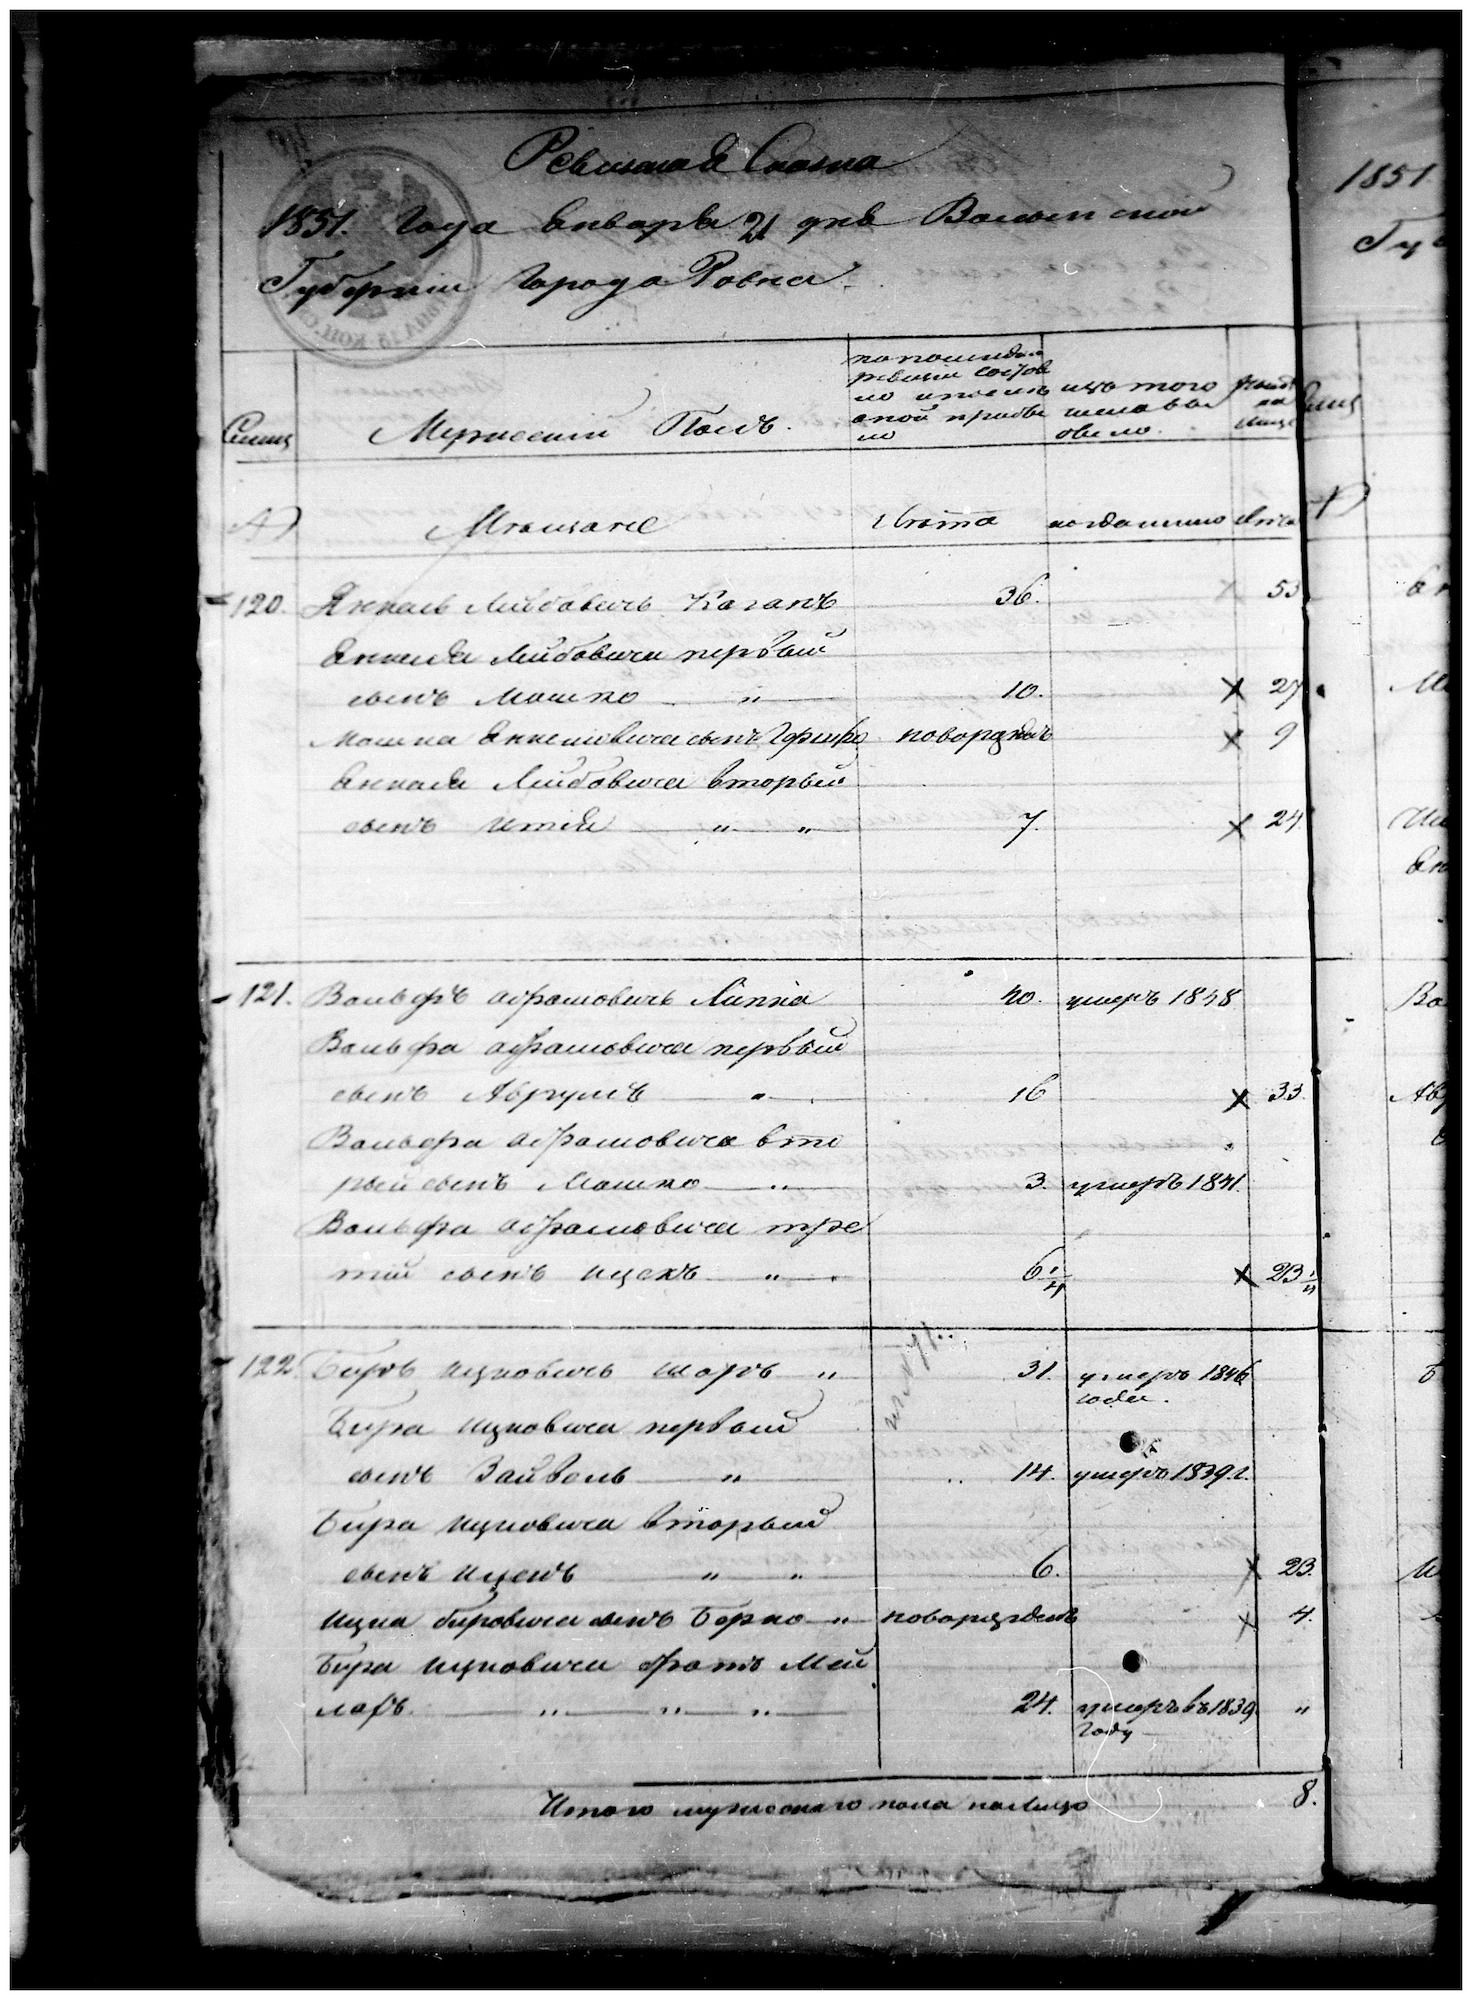 Ревизская Сказка
1851. Года Января 21 дня Волынской
Губернии Города Ровна.
Семьи
Мужеский Полъ.
по последней
ревизіи состоя
ло и после
оной прибы
ло
изъ того
числа вы
было.
ныне
на
лицо
Мѣщане
Лѣта
когда именно
Лѣта
120. Янкель Лейбовичъ Каганъ 36. 53
Янкеля Лейбовича первый
сынъ Мошко " 10. x 27
Мошка Янкелевича сынъ новорожден x 9
Янкеля Лейбовича вторый
сынъ Ится " " 7. x 24.
121. Вольфъ Абрамовичъ Липка 20. умеръ 1848
Вольфа Абрамовича первый
сынъ Аврумъ " 16 x 33.
Вольфа Абрамовича вто
рый сынъ Мошко " 3. умеръ 1841.
Вольфа Абрамовича тре
тий сынъ Ицекъ " 6 1/4 x 23 1/4
122. Беръ Ицковичъ Шоръ " 31. умеръ 1846
года.
Бера Ицковича первый
сынъ Зайвель " 14. умеръ 1839.г.
Бера Ицковича вторый
сынъ Ицекъ " " 6. x 23.
Ицка Беровича сынъ Берко " новорожденъ x 4.
Бера Ицковича братъ Мей
леръ. " " " 24. умеръ въ 1839 "
году
Итого мужескаго пола налицо 8.
1851.